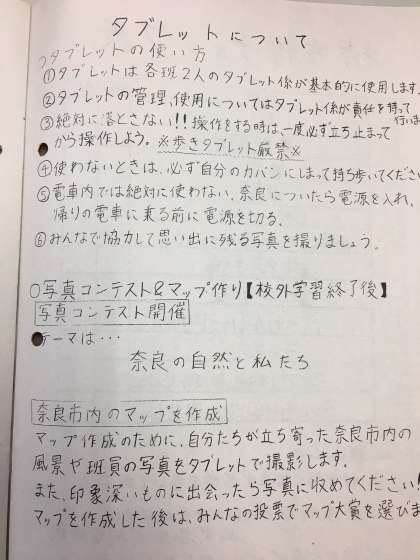 タブレットについて
○タブレットの使い方
①タブレットは各班2人のタブレット係が基本的に使用します。
②タブレットの管理、使用についてはタブレット係が責任を持って
行い
③絶対に落とさない!!操作をする時は、一度必ず立ち止まって
から操作しよう。※歩きタブレット厳禁※
④使わないときは、必ず自分のカバンにしまって持ち歩いてくださ
⑤電車内では絶対に使わない。奈良についたら電源を入れ、
帰りの電車に乗る前に電源を切る。
⑥みんなで協力して思い出に残る写真を撮りましょう。
○写真コンテスト&マップ作り【校外学習終了後】
写真コンテスト開催
テーマは・・・
奈良の自然と私たち
奈良市内のマップを作成
マップ作成のために、自分たちが立ち寄った奈良市内の
風景や班員の写真をタブレットで撮影します。
また、印象深いものに出会ったら写真に収めてください!
マップを作成した後は、みんなの投票でマップ大賞を選びま